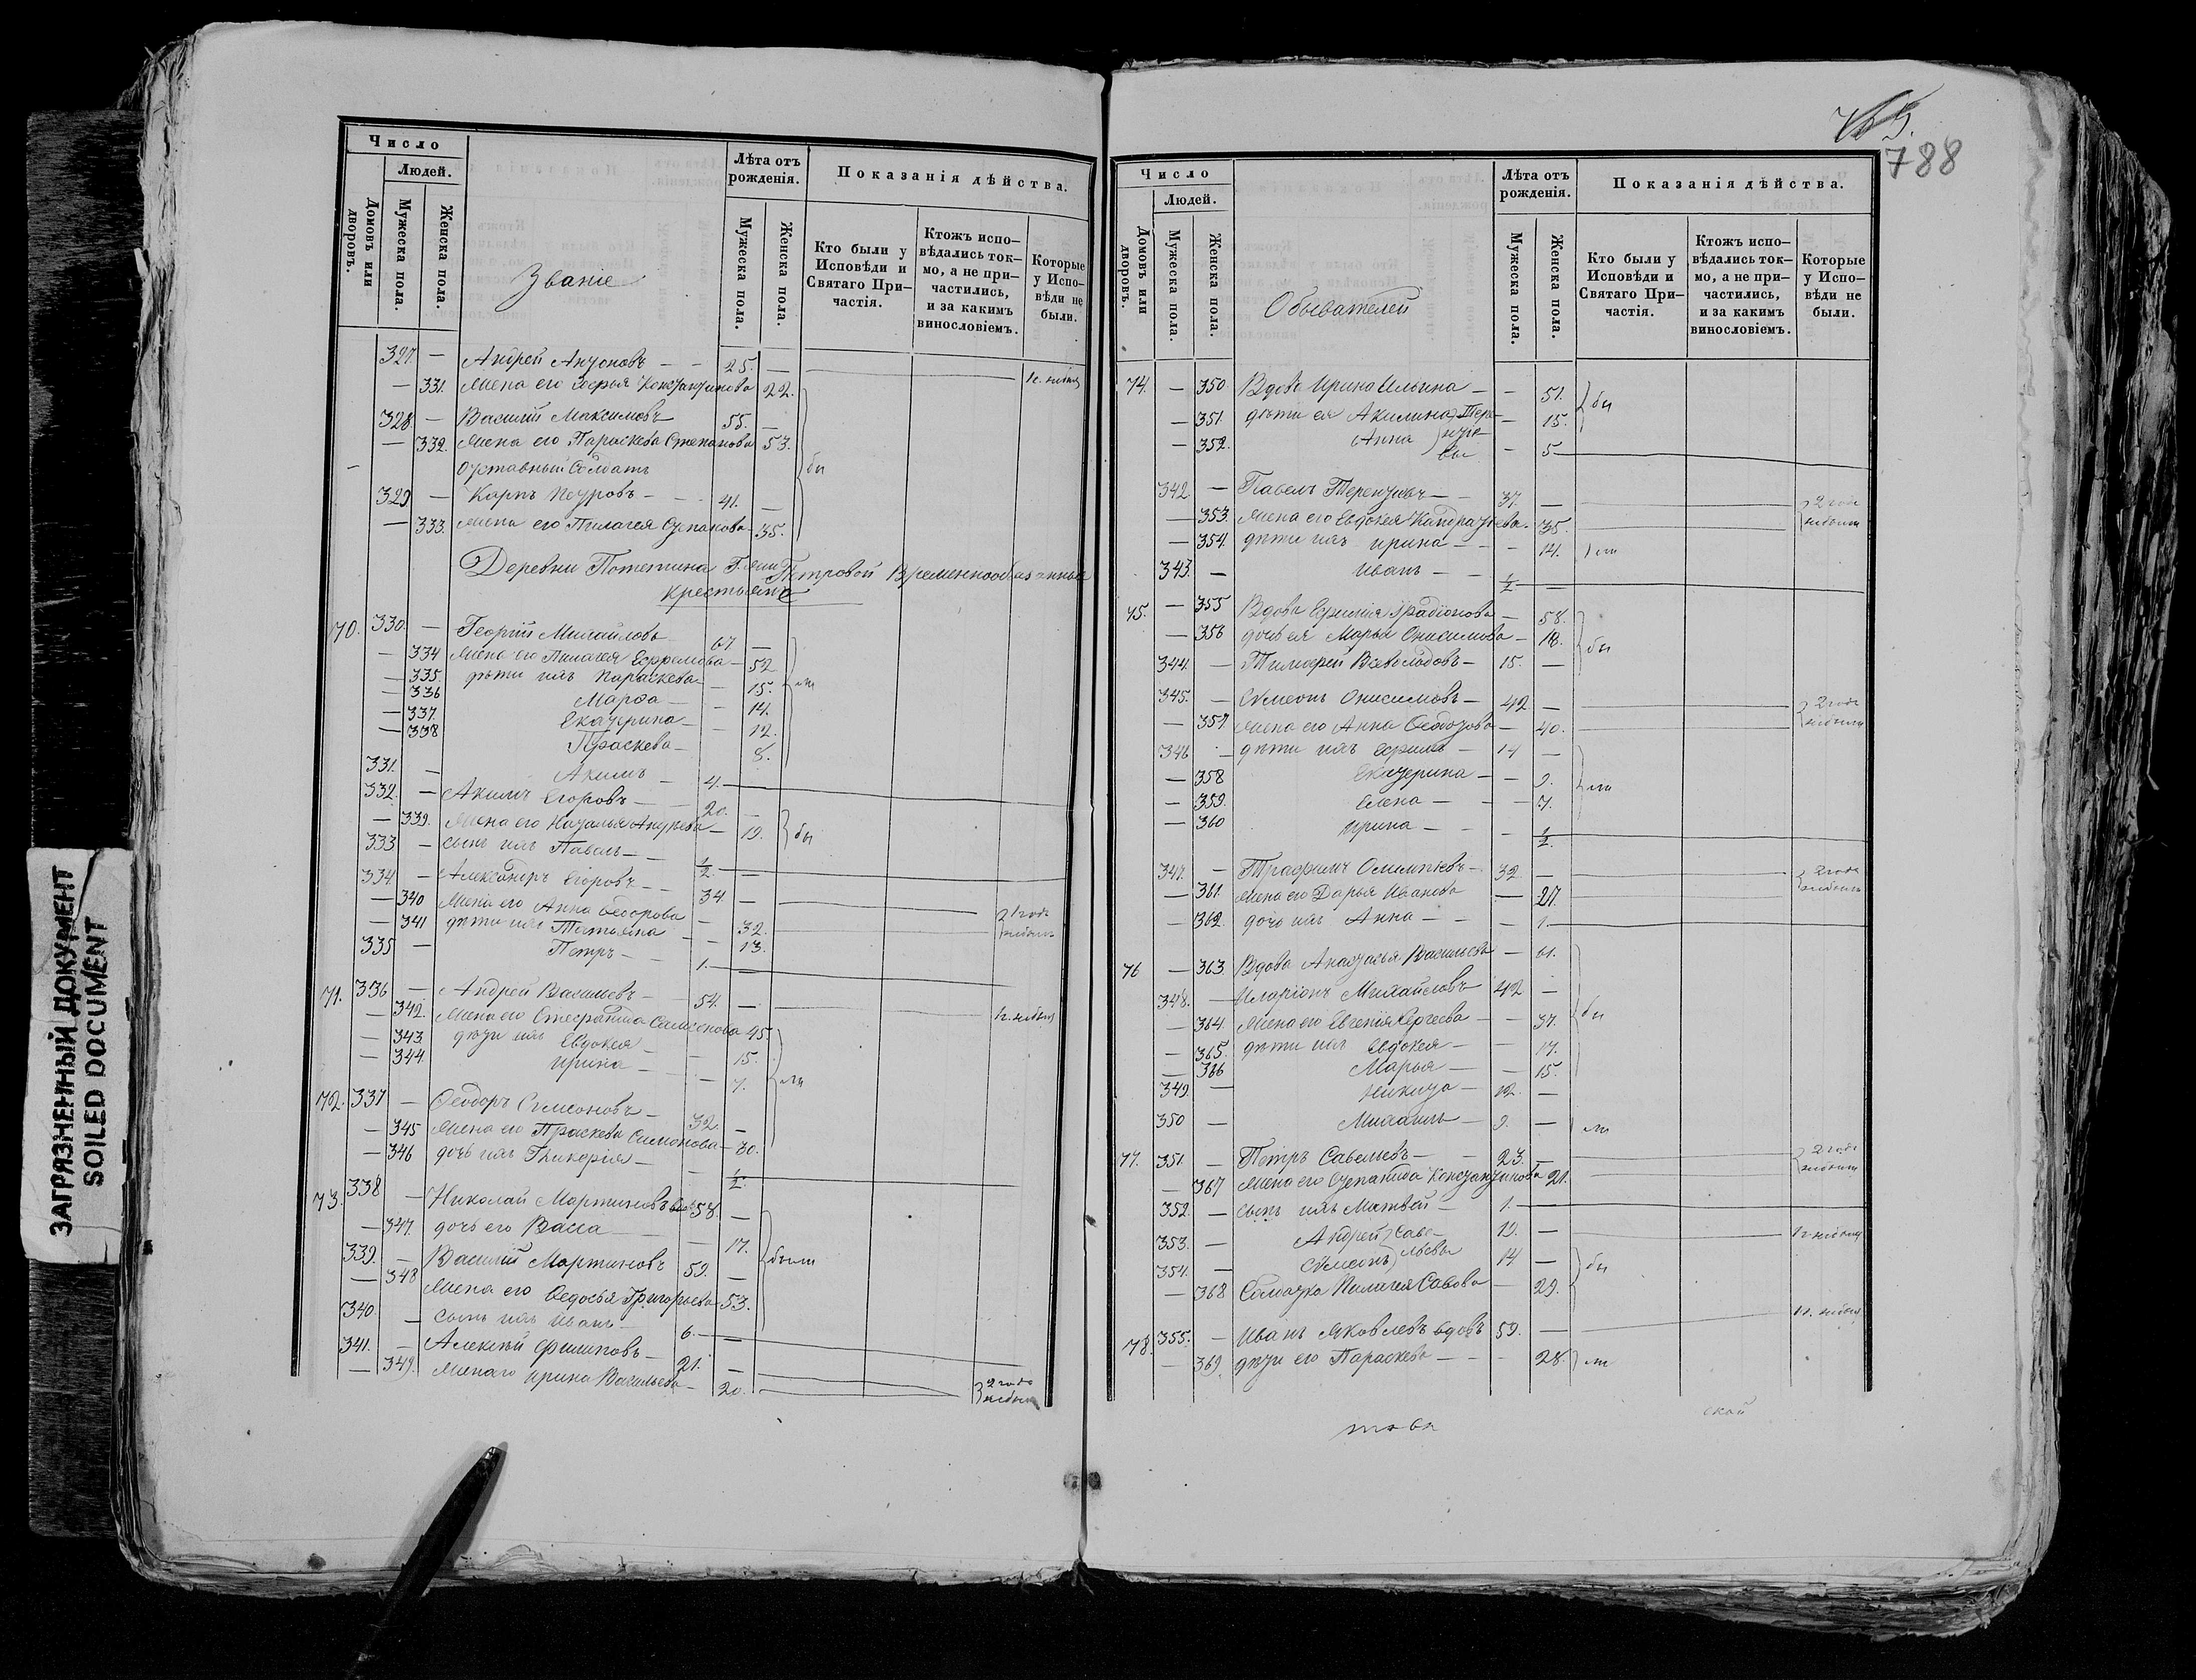 Число
Людей.
Домовъ или дворовъ.
Мужеска пола.
Женска пола.
Званіе
Лѣта отъ рожденія.
Мужеска пола.
Женска пола.
Показанія дѣйства.
Кто были у Исповѣди и Святаго При-
частія.
Ктожъ испо-
вѣдались ток-
мо, а не при-
частились,
и за какимъ
винословіемъ.
Которые
у Испо-
вѣди не
были.
327 — Андрей Антоновъ — — 25. —
— 331. Жена его Софья Константинова 22.
328 — Василій Максимовъ 55. —
— 332. Жена его Параскева Степанова 53. бы
— Отставный Солдатъ
329 — Карпъ Петровъ — 41. —
— 333. Жена его Пилагея Степанова 35.
Деревни Потетина Петровой Временнообязанные
крестьяне
70. 330. — Георгій Михайловъ 67 —
— 334 Жена его Пилагея Ефремова — 52
— 335. дѣти ихъ Параскева — 15.
— 336 Марѳа — 14.
— 337. Екатерина — 12.
— 338 Праскева — 8.
331. — Акимъ — 4.
332. — Акимъ Егоровъ — 20. —
— 339. Жена его Наталья Андреева — 19. бы
333 — сынъ ихъ Павелъ — ½ —
334. — Александръ Егоровъ — 34. —
— 340 Жена его Анна Ѳедорова — 32. 2 года небыли
— 341 дѣти ихъ Татьяна — 13.
335 — Петръ — 1.
71. 336 — Андрей Васильевъ — 54. —
— 342. Жена его Степанида Самсонова 45.
— 343 дѣти ихъ Евдокея — 15.
— 344. Ирина — 7.
72. 337 — Ѳеодоръ Симоновъ — 32. —
— 345 Жена его Праскева Симонова — 30.
— 346 дочь ихъ Гликерія — ½
73. 338 — Николай Мартиновъ вдов 58. —
— 347. дочь его Васса — 17.
339. — Василій Мартиновъ 59. — были
— 348 Жена его Ѳедосья Григорьева 53.
340. — сынъ ихъ Иванъ 6. —
341. — Алексѣй Филиповъ — 21. —
— 349. Жена его Ирина Васильева — 20. 2 года небыли
785.
788
Число
Людей.
Домовъ или дворовъ.
Мужеска пола.
Женска пола.
Обывателей
Лѣта отъ рожденія.
Мужеска пола.
Женска пола.
Показанія дѣйства.
Кто были у Исповѣди и Святаго При-
частія.
Ктожъ испо-
вѣдались ток-
мо, а не при-
частились,
и за какимъ
винословіемъ.
Которые
у Испо-
вѣди не
были.
74. — 350. Вдова Ирина Ильина — — 51. бы
— 351. дѣти ея Акилина Тере- — 15.
— 352. Анна нтіе-вы — 5
342 — Павелъ Терентьевъ — 37. — 2 года
— 353. Жена его Евдокея Кандратьева 35. небыли
— 354. дѣти ихъ Ирина — — 14.
343. — Иванъ — ½
75. — 355 Вдова Ефимія Урадіонова — 58.
— 356 дочь ея Марья Онисимова — 18. бы
344. — Тимофей Всеволодовъ — 15. —
345. — Симеонъ Онисимовъ — 42 — 2 года
— 357 Жена его Анна Ѳедотова — 40. небыли
346 — дѣти ихъ Ефимъ — 14 —
— 358 Екатерина — — 9.
— 359. Елена — — 7.
— 360 Ирина — — ½
347. — Трафимъ Олимпіевъ — 32 — 2 года
— 361. Жена его Дарья Иванова — 27. небыли
— 362. дочь ихъ Анна — — 1.
76 — 363 Вдова Анастасья Васильева — 61.
348. — Иларіонъ Михайловъ 42 —
— 364. Жена его Евгенія Сергеева — 37. бы
— 365. дѣти ихъ Евдокея — — 17.
— 366 Марья — — 15.
349. — Никита — 12. —
350 — Михаилъ — 9. —
77. 351. — Петръ Савельевъ — 23. — 2 года
— 367 Жена его Степанида Константинова 21. небыли
352. — сынъ ихъ Матвей — 1. —
353. — Андрей Саве- 19. —
354. — Симеонъ льевы 14 — бы
— 368 Солдатка Пилагея Савова — 29.
78. 355. — Иванъ Яковлевъ вдовъ 59. —
— 369. дѣти его Параскева — — 28.